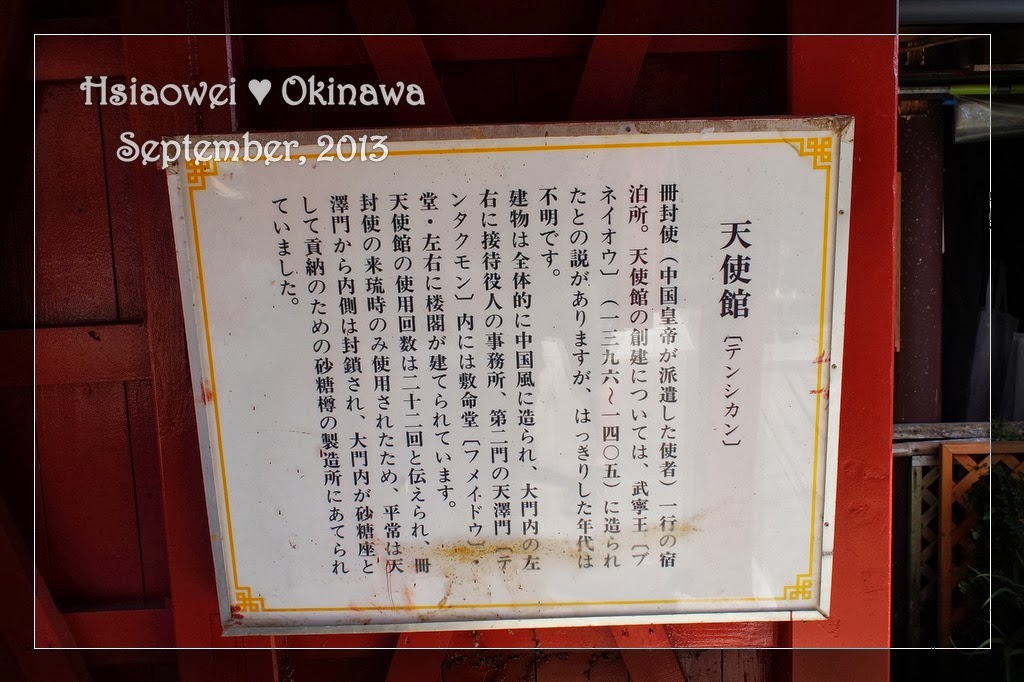 Hsiaowei ♥ Okinawa
September, 2013
天使館〔テンシカン〕
冊封使（中国皇帝が派遣した使者）一行の宿
泊所。天使館の創建については、武寧王〔ブ
ネイオウ〕（一三九六〜一四〇五）に造られ
たとの説がありますが、はっきりした年代は
不明です。
建物は全体的に中国風に造られ、大門内の左
右に接待役人の事務所、第二門の天澤門〔テ
ンタクモン〕内には敷命堂〔フメイドウ〕・
堂・左右に楼閣が建てられています。
天使館の使用回数は二十二回と伝えられ、冊
封使の来琉時のみ使用されたため、平常は天
澤門から内側は封鎖され、大門内が砂糖座と
して貢納のための砂糖樽の製造所にあてられ
ていました。